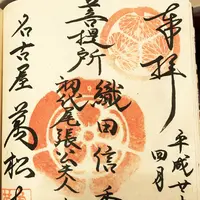 奉拝
平成廿
四月
織田信秀
菩提所
初代尾張公夫人
名古屋 萬松